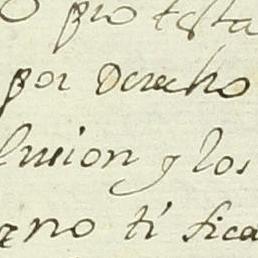 o protesta
por Derecho
lusion y los
rno tifica